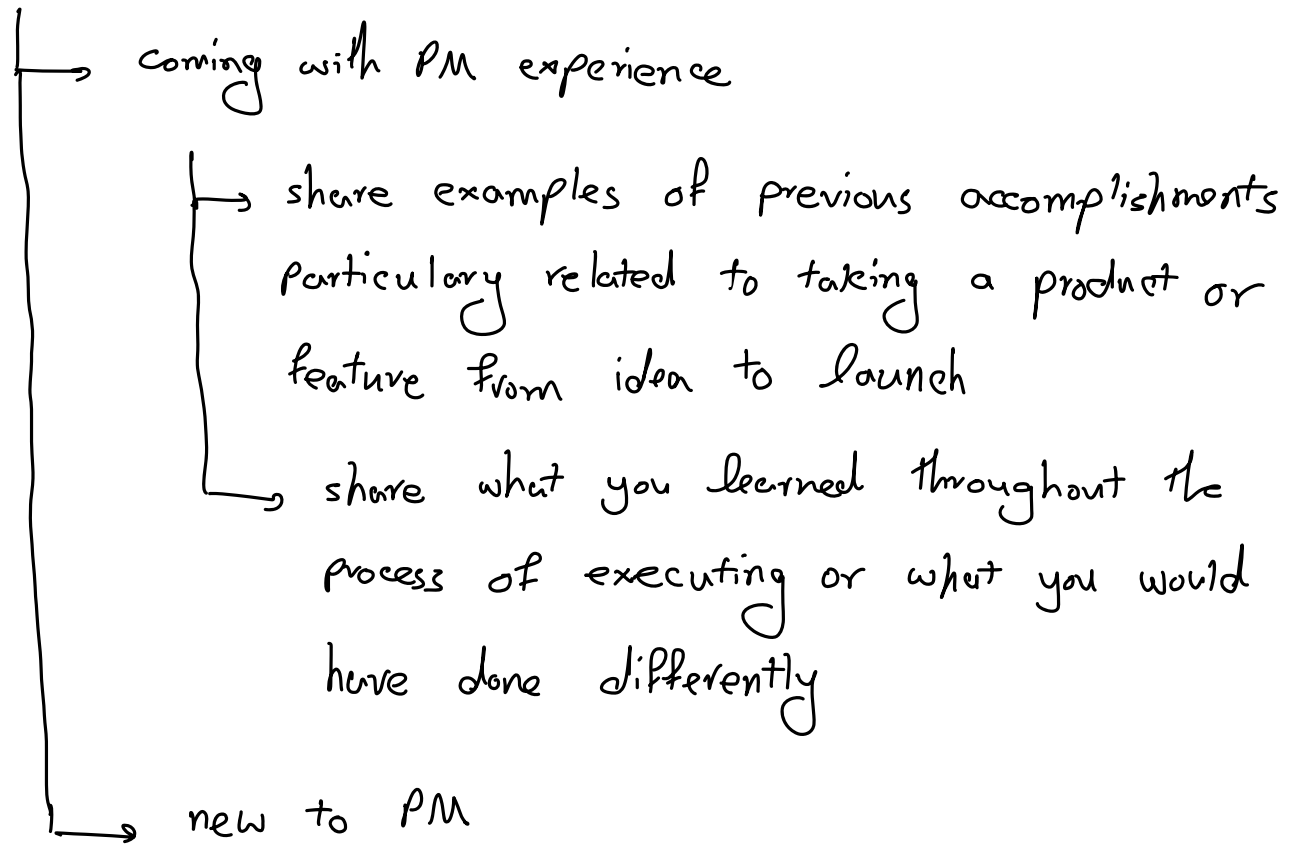 coming with PM experience
share examples of previous accomplishments
particulary related to taking a product or
feature from idea to launch
share what you learned throughout the
process of executing or what you would
have done differently
new to PM